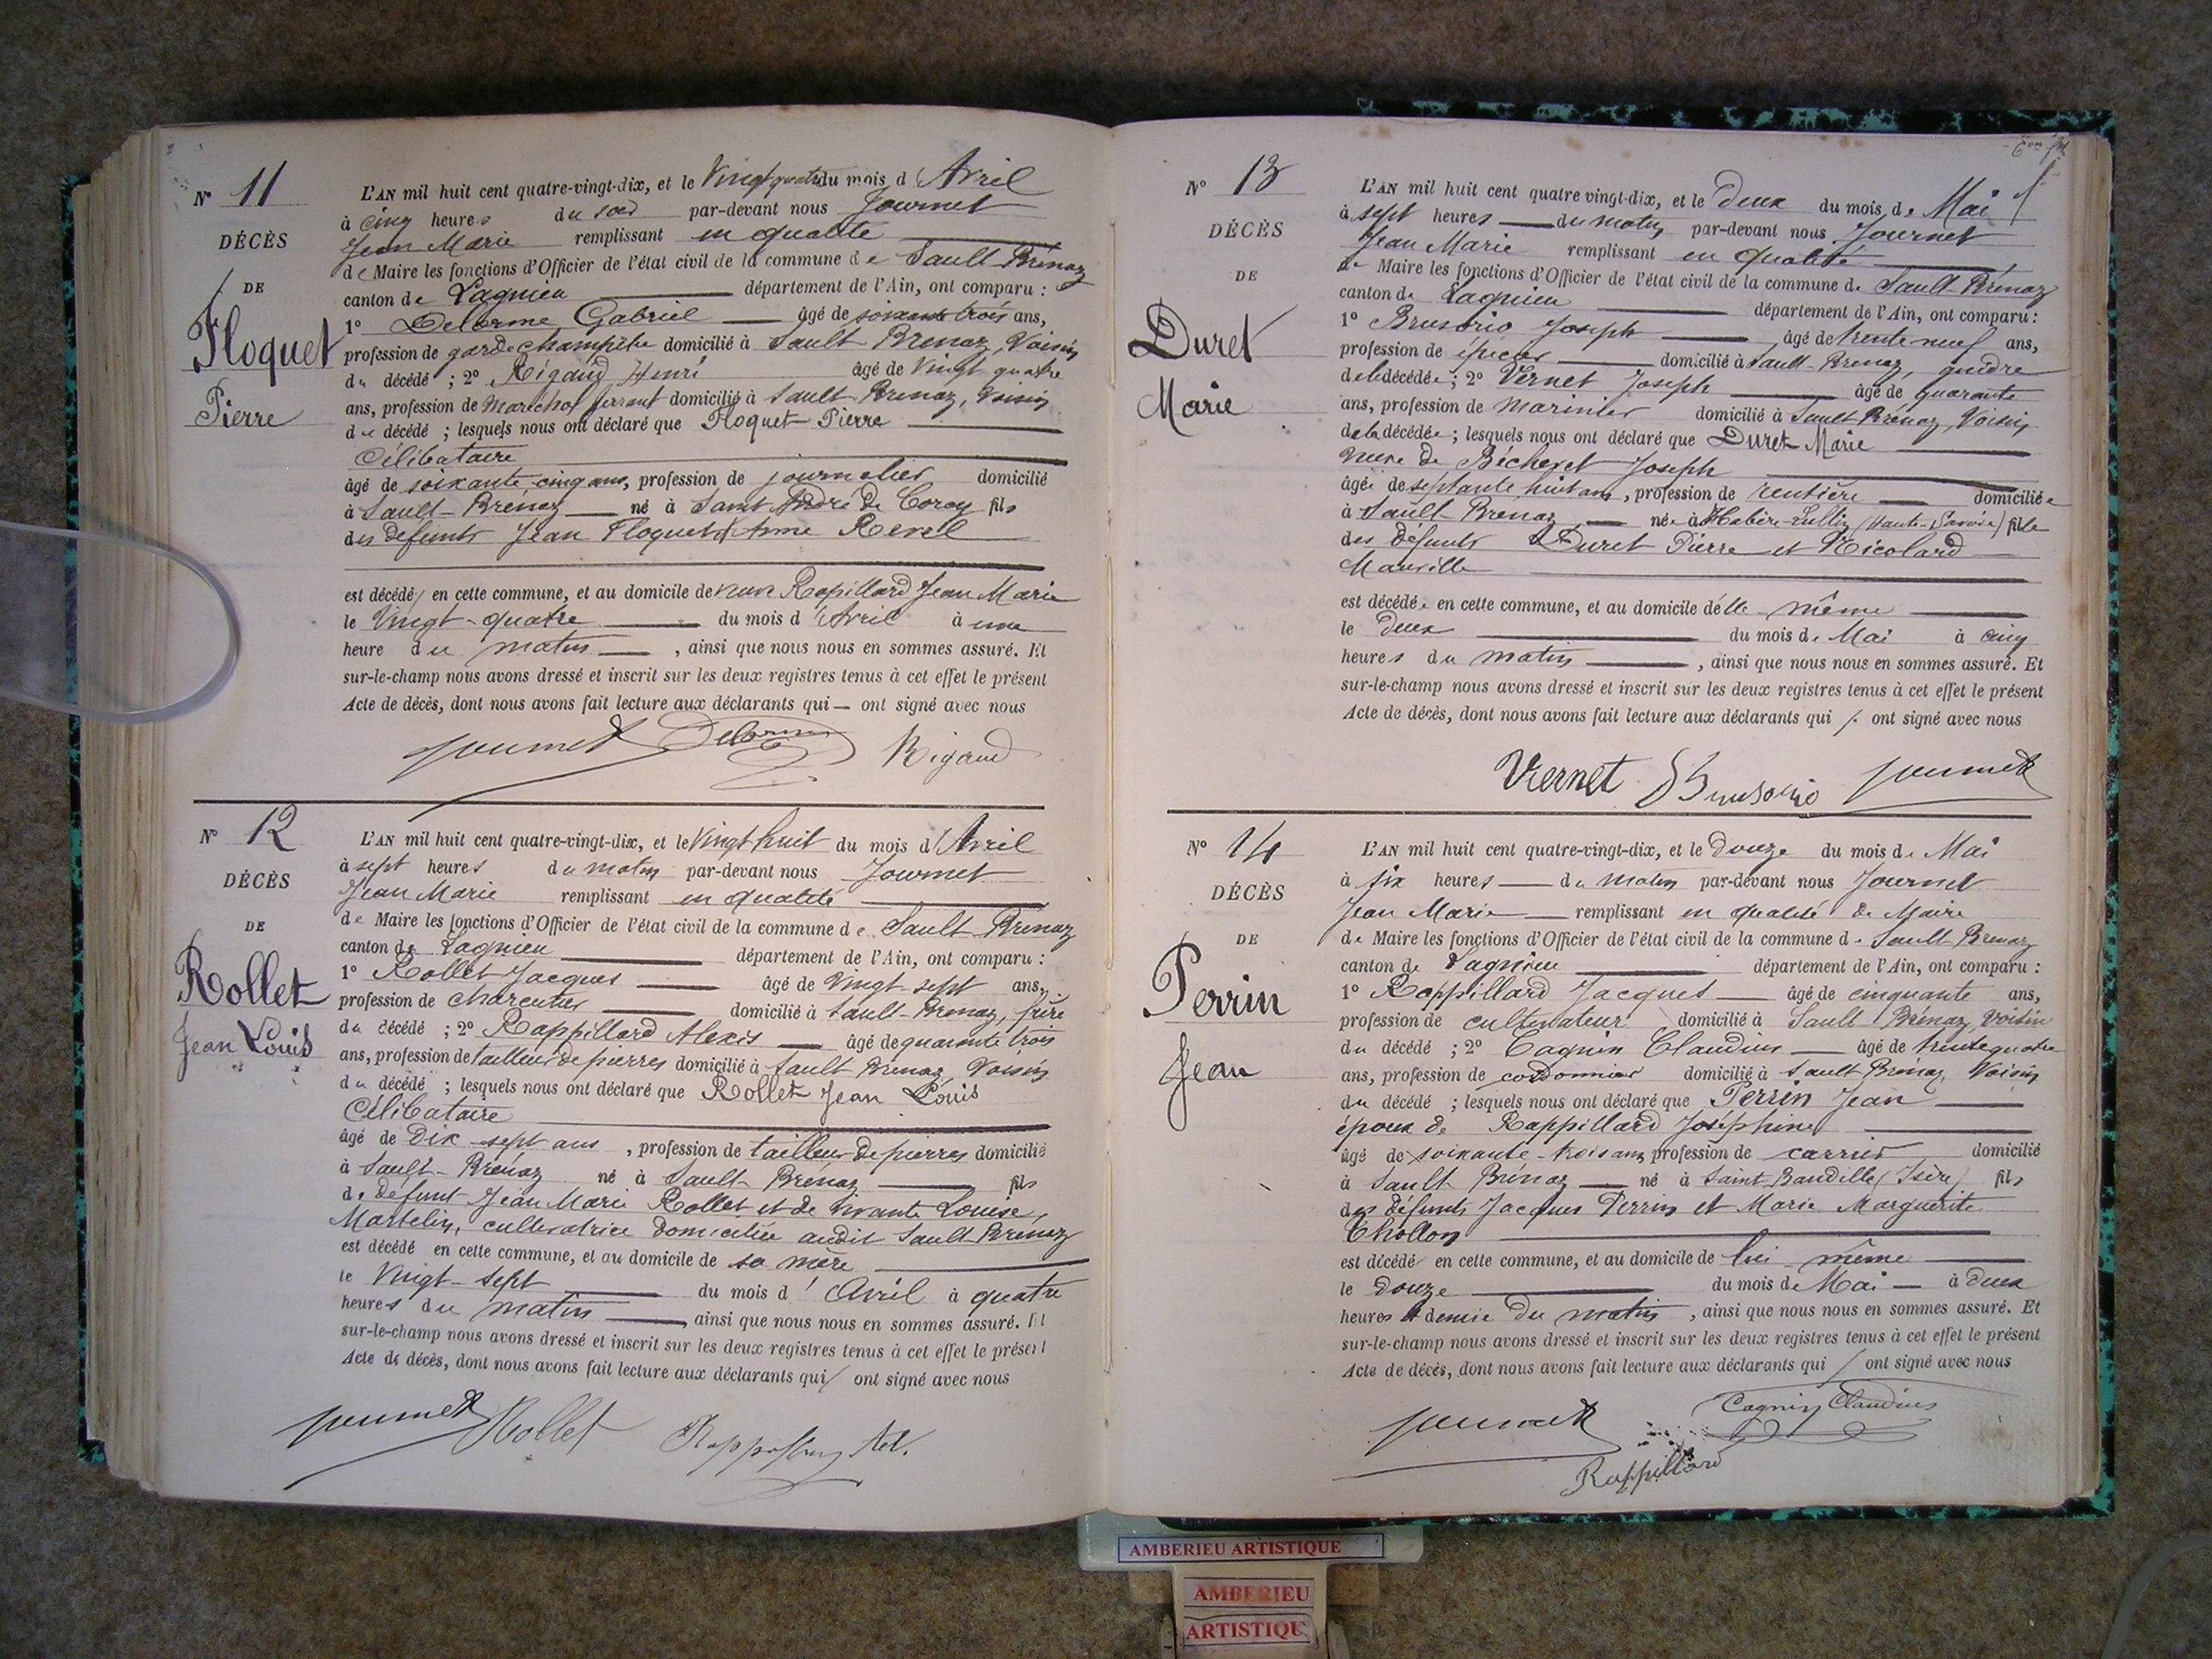 N° 11
DÉCÈS
DE
Floquet
Pierre
L'AN mil huit cent quatre-vingt-dix, et le Vingt quatre du mois d'Avril
à cinq heures du soir par-devant nous Journet
Jean Marie remplissant en qualité
de Maire les fonctions d'Officier de l'état civil de la commune de Sault-Brénaz
canton de Lagnieu département de l'Ain, ont comparu :
1° Delorme Gabriel âgé de soixante trois ans,
profession de garde champêtre domicilié à Sault-Brenaz, Voisin
du décédé ; 2° Rigaud Henri âgé de Vingt quatre
ans, profession de Maréchal ferrant domicilié à Sault-Brenaz, Voisin
du décédé ; lesquels nous ont déclaré que Floquet Pierre
Célibataire
âgé de soixante cinq ans, profession de journalier domicilié
à Sault-Brénaz né à Saint André de Corcy fils
des defunts Jean Floquet et Anne Revel
est décédé en cette commune, et au domicile de Rapillard Jean Marie
le Vingt-quatre du mois d'Avril à une
heure du matin, ainsi que nous nous en sommes assuré. Et
sur-le-champ nous avons dressé et inscrit sur les deux registres tenus à cet effet le présent
Acte de décès, dont nous avons fait lecture aux déclarants qui — ont signé avec nous
Journet Delorme Rigaud
N° 12
DÉCÈS
DE
Rollet
Jean Louis
L'AN mil huit cent quatre-vingt-dix, et le Vingt huit du mois d'Avril
à sept heures du matin par-devant nous Journet
Jean Marie remplissant en qualité
de Maire les fonctions d'Officier de l'état civil de la commune de Sault-Brénaz
canton de Lagnieu département de l'Ain, ont comparu :
1° Rollet Jacques âgé de Vingt-sept ans,
profession de charcutier domicilié à Sault-Brenaz, frère
du décédé ; 2° Rappillard Alexis âgé de quarante trois
ans, profession de tailleur de pierres domicilié à Sault Brénaz, Voisin
du décédé ; lesquels nous ont déclaré que Rollet Jean Louis
Célibataire
âgé de Dix-sept ans, profession de tailleur de pierres domicilié
à Sault-Brénaz né à Sault-Brénaz fils
de défunt Jean Marie Rollet et de vivante Louise
Martelin, cultivatrice domiciliée audit Sault-Brénaz
est décédé en cette commune, et au domicile de sa mère
le Vingt-sept du mois d'Avril à quatre
heures du matin ainsi que nous nous en sommes assuré. Et
sur-le-champ nous avons dressé et inscrit sur les deux registres tenus à cet effet le présent
Acte de décès, dont nous avons fait lecture aux déclarants qui / ont signé avec nous
Journet Rollet
N° 13
DÉCÈS
DE
Duret
Marie
L'AN mil huit cent quatre vingt-dix, et le Deux du mois de Mai
à sept heures du matin par-devant nous Journet
Jean Marie remplissant en qualité
de Maire les fonctions d'Officier de l'état civil de la commune de Sault-Brénaz
canton de Lagnieu département de l'Ain, ont comparu :
1° Brusorio Joseph âgé de trente neuf ans,
profession de épicier domicilié à Sault-Brenaz, gendre
de la décédée ; 2° Vernet Joseph âgé de quarante
ans, profession de marinier domicilié à Sault Brénaz, Voisin
de la décédée ; lesquels nous ont déclaré que Duret Marie
veuve de Béchevet Joseph
âgée de septante huit ans, profession de rentière domiciliée
à Sault-Brenaz, née à Habère-Lullin (Haute-Savoie) fille
des défunts Duret Pierre et Nicolard
est décédée en cette commune, et au domicile d'elle-même
le Deux du mois de Mai à cinq
heures du matin, ainsi que nous nous en sommes assuré. Et
sur-le-champ nous avons dressé et inscrit sur les deux registres tenus à cet effet le présent
Acte de décès, dont nous avons fait lecture aux déclarants qui /. ont signé avec nous
Vernet Brusorio Journet
N° 14
DÉCÈS
DE
Perrin
Jean
L'AN mil huit cent quatre-vingt-dix, et le Douze du mois de Mai
à six heures du matin par-devant nous Journet
Jean Marie remplissant en qualité de Maire
de Maire les fonctions d'Officier de l'état civil de la commune de Sault Brenaz
canton de Lagnieu département de l'Ain, ont comparu :
1° Rappillard Jacques âgé de cinquante ans,
profession de cultivateur domicilié à Sault Brénaz, voisin
du décédé ; 2° Cagnin Claudius âgé de trente quatre
ans, profession de cordonnier domicilié à Sault Brénaz, Voisin
du décédé ; lesquels nous ont déclaré que Perrin Jean
époux de Rappillard Joséphine
âgé de soixante-trois ans, profession de carrier domicilié
à Sault Brénaz né à Saint Baudille (Isère) fils
des défunts Jacques Perrin et Marie Marguerite
Chollon
est décédé en cette commune, et au domicile de lui-même
le Douze du mois de Mai à deux
heures et demie du matin, ainsi que nous nous en sommes assuré. Et
sur-le-champ nous avons dressé et inscrit sur les deux registres tenus à cet effet le présent
Acte de décès, dont nous avons fait lecture aux déclarants qui / ont signé avec nous
Journet Cagnin Claudius
Rappillard
AMBERIEU ARTISTIQUE
AMBERIEU
ARTISTIQU